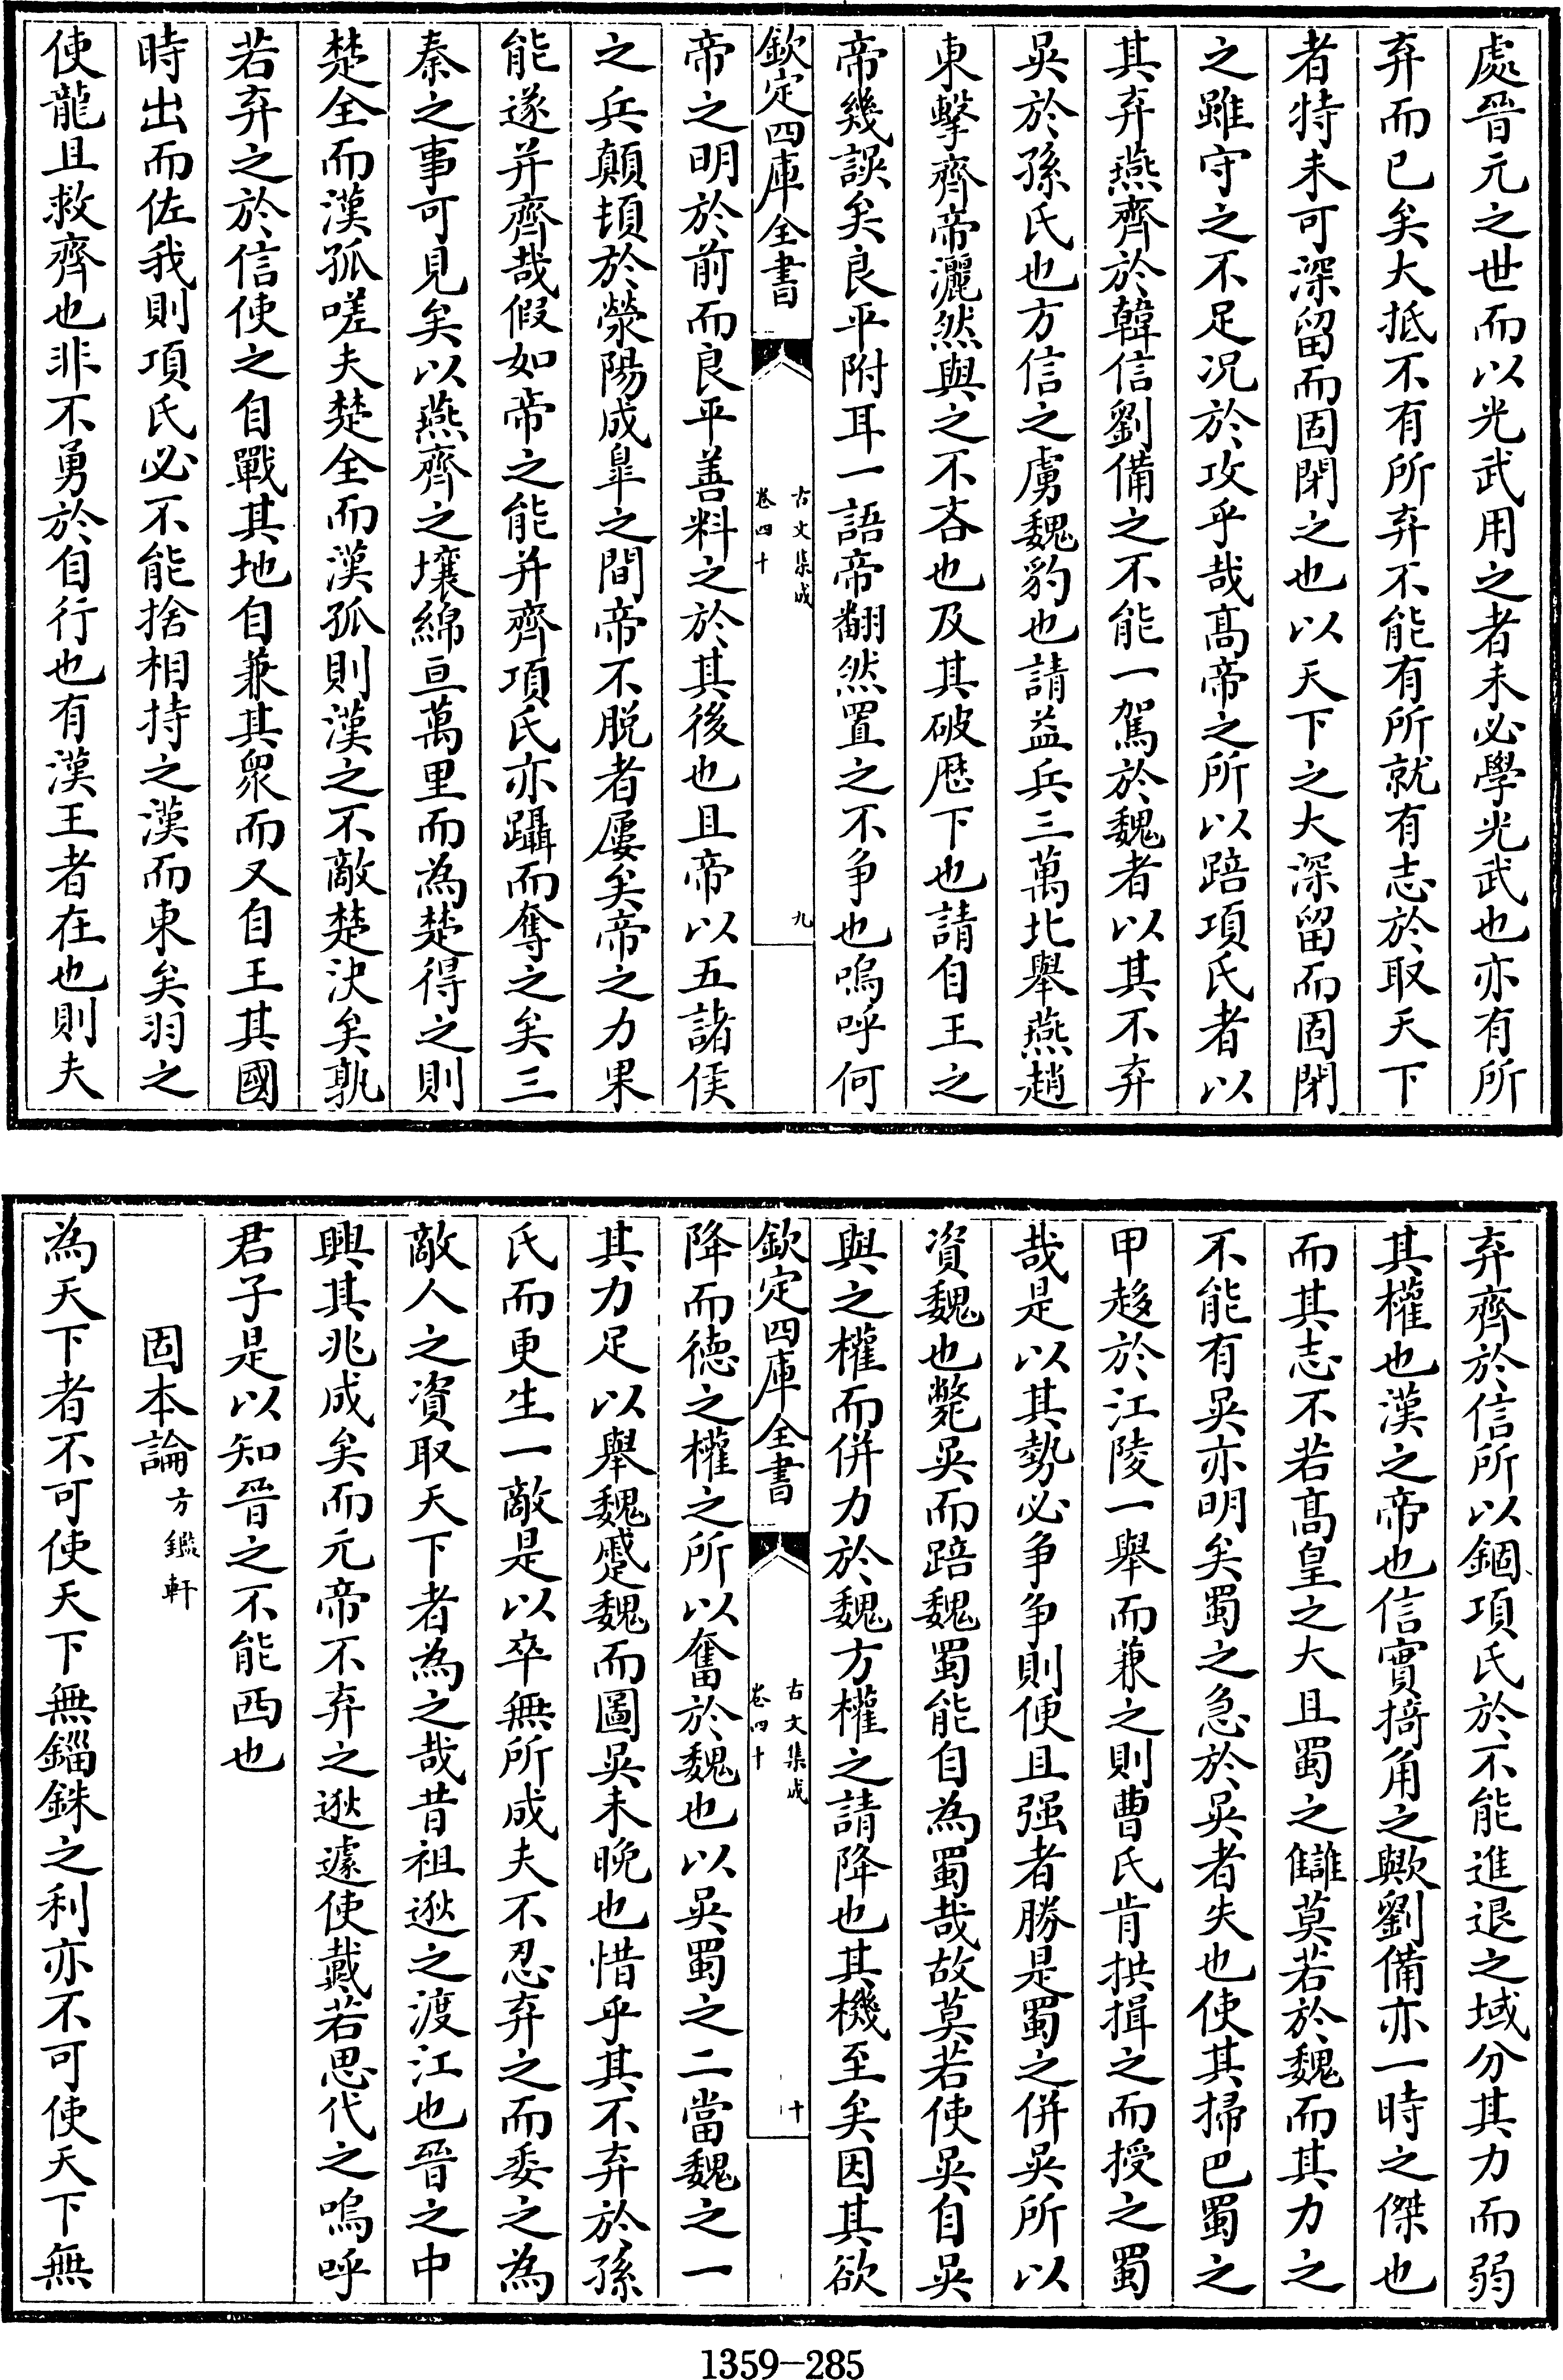 處晉元之世而以光武用之者未必學光武也亦有所
弃而已矣大抵不有所弃不能有所就有志於取天下
者特未可深留而固閉之也以天下之大深留而固閉
之雖守之不足况於攻乎哉髙帝之所以踣項氏者以
其弃燕齊於韓信劉備之不能一駕於魏者以其不弃
吳於孫氏也方信之虜魏豹也請益兵三萬北舉燕趙
東擊齊帝灑然與之不吝也及其破歴下也請自王之
帝幾誤矣良平附耳一語帝翻然置之不争也嗚呼何
欽定四庫全書
古文集成
卷四十
九
帝之明於前而良平善料之於其後也且帝以五諸侯
之兵顛頓於滎陽成臯之間帝不脱者屢矣帝之力果
能遂并齊哉假如帝之能并齊項氏亦躡而奪之矣三
秦之事可見矣以燕齊之壤綿亘萬里而為楚得之則
楚全而漢孤嗟夫楚全而漢孤則漢之不敵楚決矣孰
若弃之於信使之自戰其地自兼其衆而又自王其國
時出而佐我則項氏必不能捨相持之漢而東矣羽之
使龍且救齊也非不勇於自行也有漢王者在也則夫
弃齊於信所以錮項氏於不能進退之域分其力而弱
其權也漢之帝也信實掎角之歟劉備亦一時之傑也
而其志不若髙皇之大且蜀之讎莫若於魏而其力之
不能有吳亦明矣蜀之急於吳者失也使其掃巴蜀之
甲趍於江陵一舉而兼之則曹氏肯拱揖之而授之蜀
哉是以其勢必争争則便且强者勝是蜀之併吳所以
資魏也斃吳而踣魏蜀能自為蜀哉故莫若使吳自吳
與之權而併力於魏方權之請降也其機至矣因其欲
欽定四庫全書
古文集成
卷四十
十
降而徳之權之所以奮於魏也以吳蜀之二當魏之一
其力足以舉魏蹙魏而圖吳未晚也惜乎其不弃於孫
氏而更生一敵是以卒無所成夫不忍弃之而委之為
敵人之資取天下者為之哉昔祖逖之渡江也晉之中
興其兆成矣而元帝不弃之逖遽使戴若思代之嗚呼
君子是以知晉之不能西也
固本論 方鑑軒
為天下者不可使天下無錙銖之利亦不可使天下無
1359－285